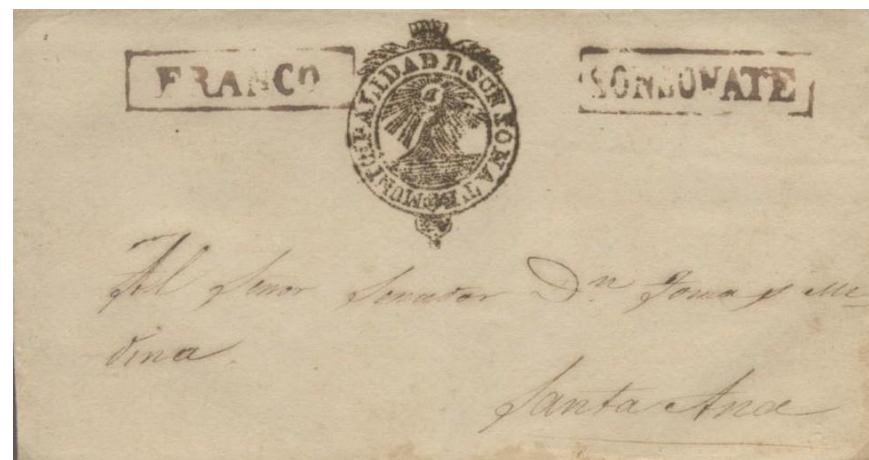 FRANCO
MUNICIPALIDAD D. SONSONATE
SONSONATE
Al Señor Senador Dn Tomas Me-
dina.
Santa Ana